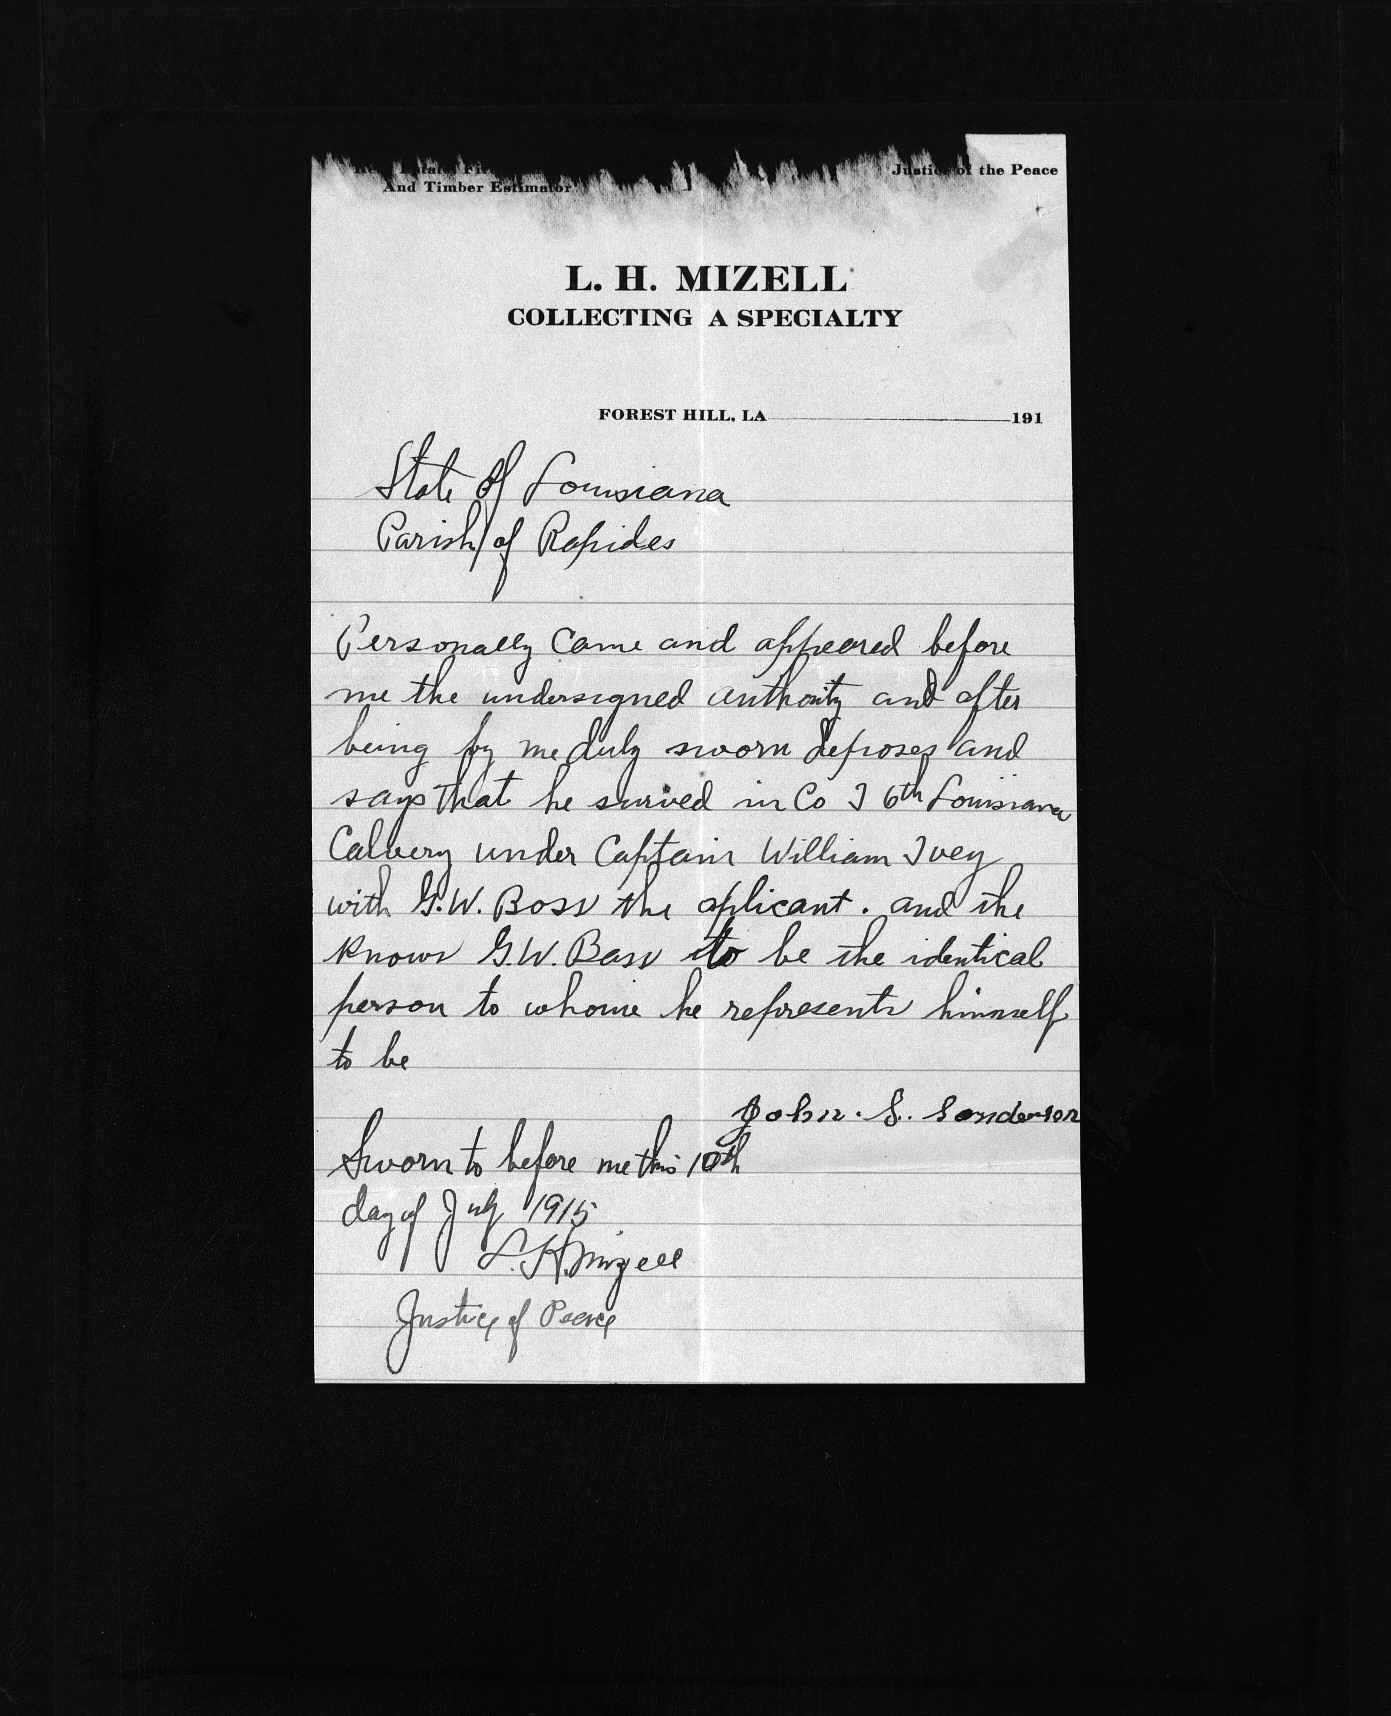 Real Estate, Fire
And Timber Estimator
Justice of the Peace
L. H. MIZELL
COLLECTING A SPECIALTY
FOREST HILL, LA 191
State of Louisiana
Parish of Rapides
Personally Came and appeared before
me the undersigned authority and after
being by me duly sworn deposes and
says that he survied in Co I 6th Louisiana
Calvery under Captain William Ivey
with G.W. Bass the aplicant. and the
knows G.W. Bass to be the identical
person to whome he represents himself
to be
John. S. Sanderson
Sworn to before me this 10th
day of July 1915
L. H. Mizell
Justice of Peace